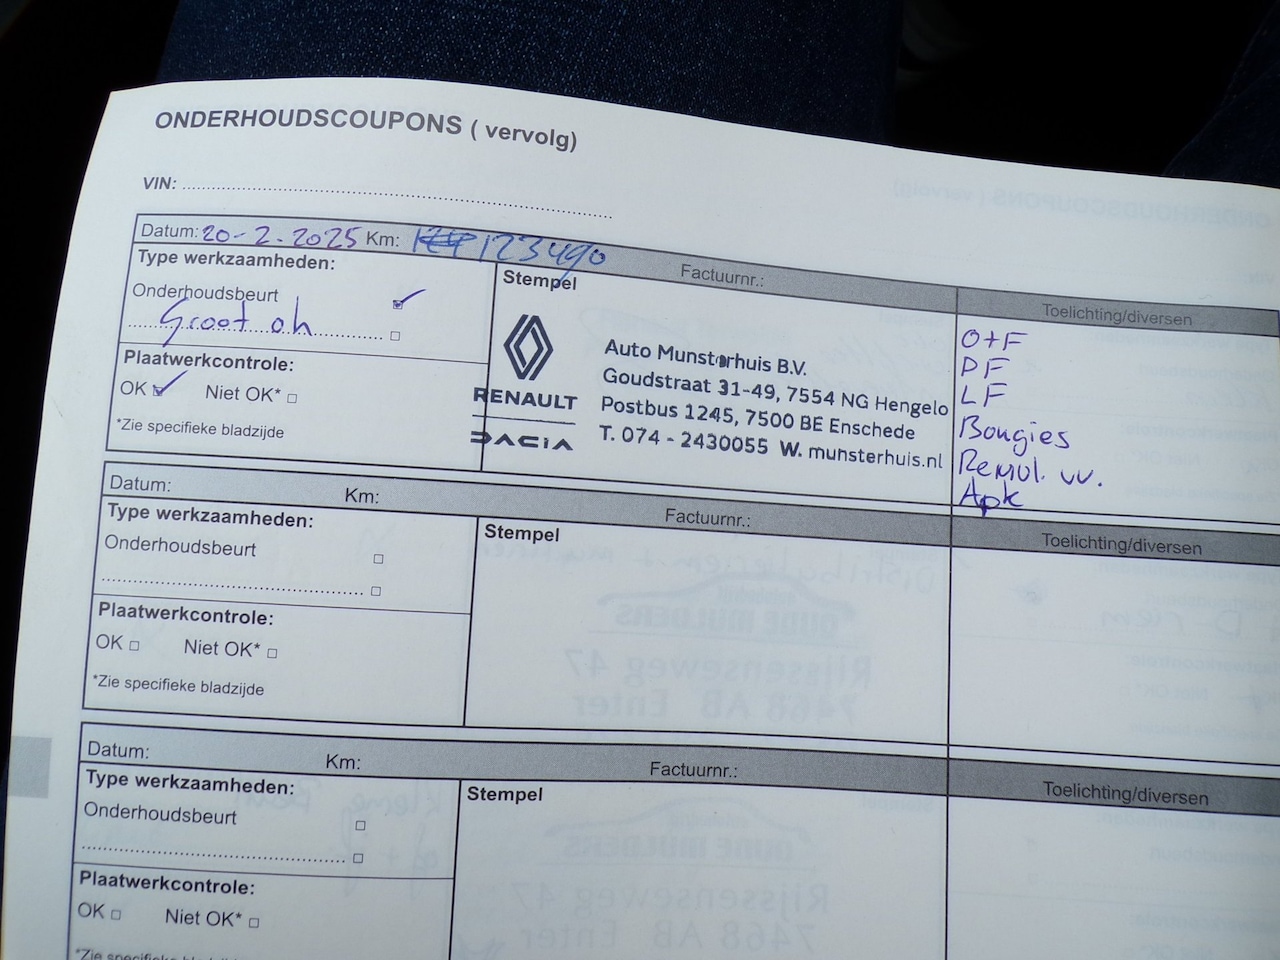 ONDERHOUDSCOUPONS ( vervolg)
VIN:
Datum: 20-2-2025 Km: 123490 Factuurnr.:
Type werkzaamheden:
Onderhoudsbeurt
Groot oh
Plaatwerkcontrole:
OK Niet OK*
*Zie specifieke bladzijde
Stempel
RENAULT
DACIA
Auto Munsterhuis B.V.
Goudstraat 31-49, 7554 NG Hengelo
Postbus 1245, 7500 BE Enschede
T. 074 - 2430055 W. munsterhuis.nl
Toelichting/diversen
O+F
PF
LF
Bougies
Remvl. vv.
Apk
Datum: Km: Factuurnr.:
Type werkzaamheden:
Onderhoudsbeurt
Plaatwerkcontrole:
OK Niet OK*
*Zie specifieke bladzijde
Stempel
Toelichting/diversen
Datum: Km: Factuurnr.:
Type werkzaamheden:
Onderhoudsbeurt
Plaatwerkcontrole:
OK Niet OK*
*Zie specifieke
Stempel
Toelichting/diversen